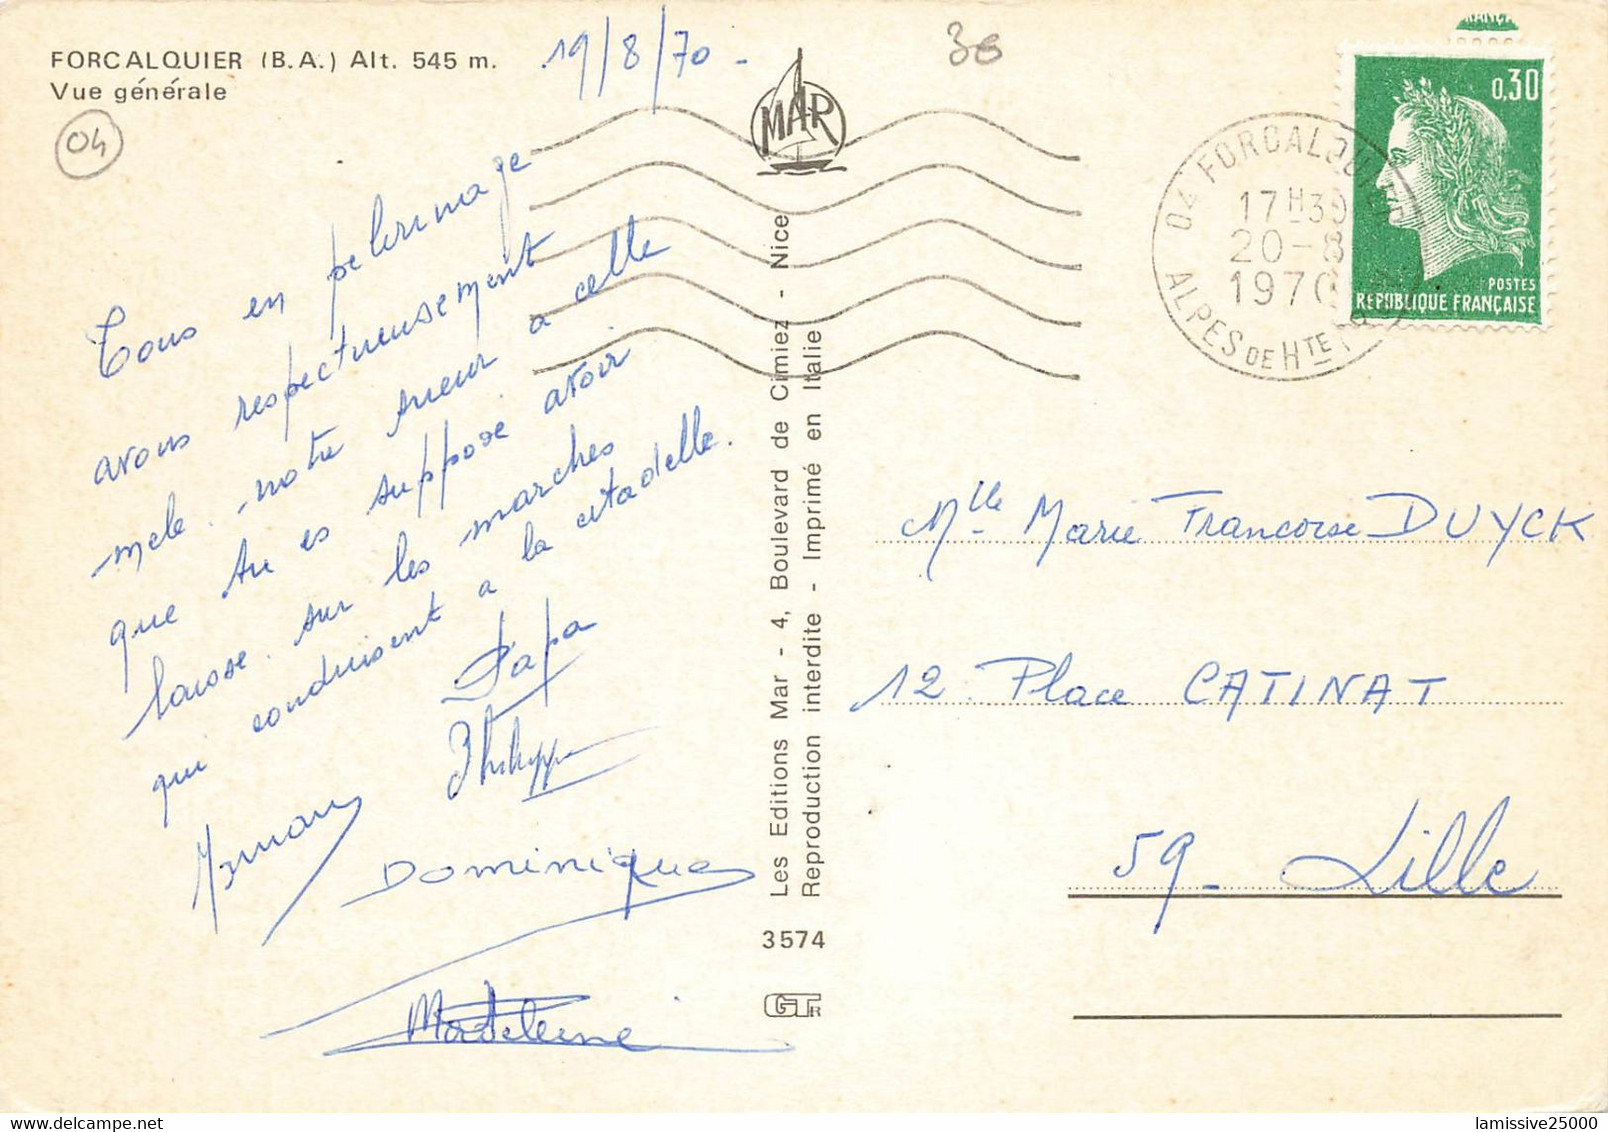 FORCALQUIER (B.A.) Alt. 545 m.
Vue générale
04
19/8/70 -
30
MAR
Tous en pelerinage
avons respectueusement
mele notre sueur a celle
que tu es suppose avoir
laisse sur les marches
qui conduisent a la citadelle.
Papa
Philippe
Dominique
Madeleine
Les Editions Mar - 4, Boulevard de Cimiez - Nice
Reproduction interdite - Imprimé en Italie
3574
GTR
0,30
POSTES
REPUBLIQUE FRANÇAISE
04 FORCALQUIER
17H30
20-8
1970
ALPES DE HTE
Mlle Marie Francoise DUYCK
12 Place CATINAT
59 - Lille
lamissive25000